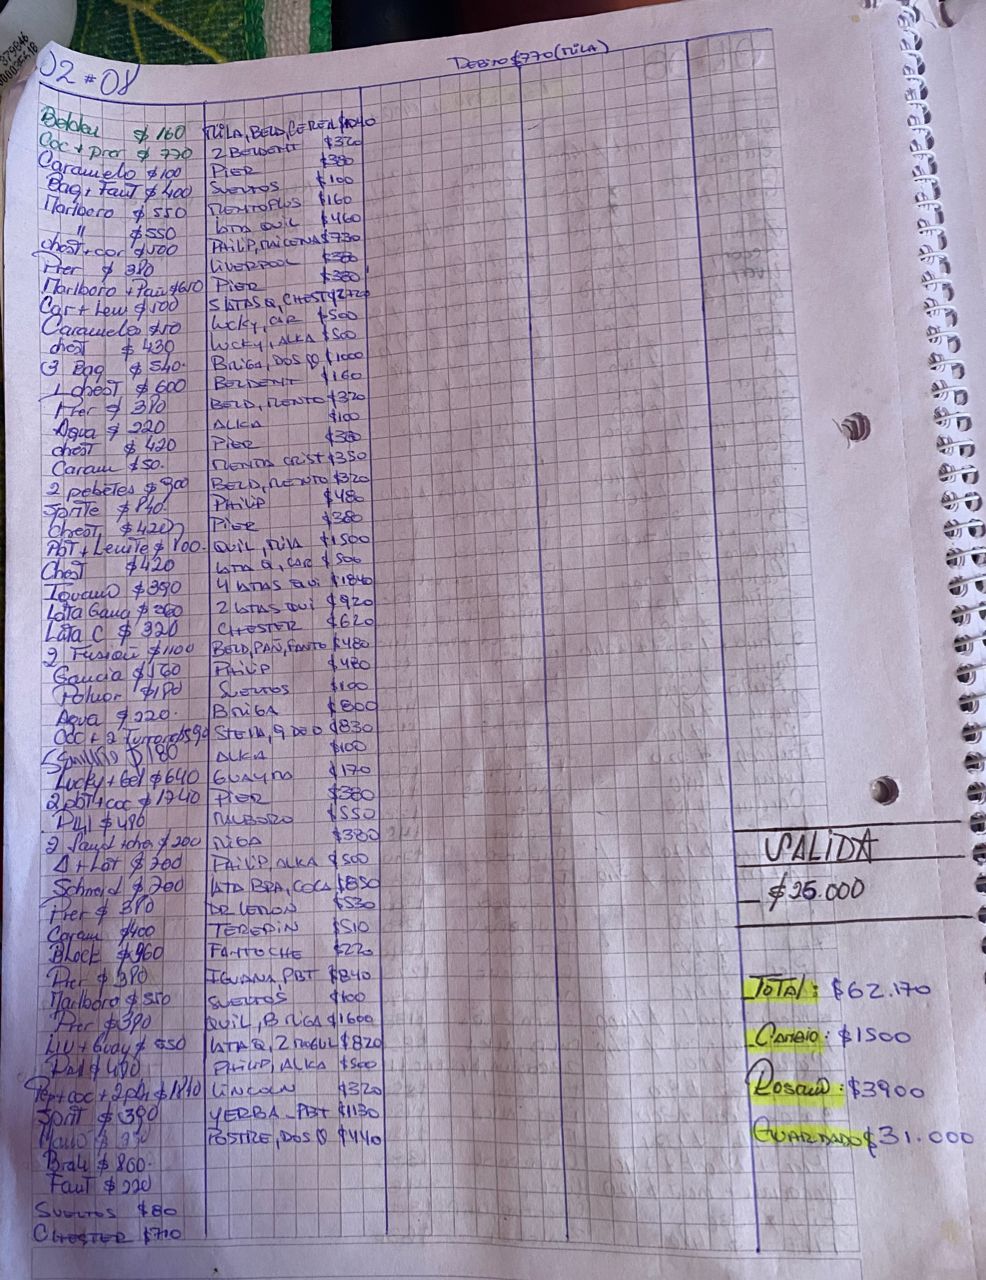 02 # 08
DEBITO $770 (MILA)
Belden $160
Coc + pier $770
Caramelo $100
Bag + Fant $400
Marlboro $550
" $550
chest + car $500
Pier $380
Marlboro + Pañ $610
Car + Lew $100
Caramelos $50
chest $430
3 Bag $540
1 chest $600
Pier $380
Agua $220
chest $420
Caram $50
2 pebetes $900
Sprite $840
Chest $420
PBT + Levite $
Chest $420
Iguana $390
Lata Gauc $360
Lata C $320
2 Fusion $1100
Gaucia $160
Polvor $180
Agua $220
Coc + 2
$180
Lucky + Gel $640
2 pbt + coc $1740
Phil $480
2 $200
+ Lat $200
Schneid $200
Pier $380
Caram $400
Block $960
Pier $380
Marlboro $550
Pier $380
LIV + Guay $550
Phil $480
Pep + coc + 2 pb $1840
Sprit $390
Brah $860
Fant $220
SUELTOS $80
CHESTER $710
MILA, BELD, CEREA $1040
2 BELDENT $320
PIER $380
SUELTOS $100
MENTOPLUS $160
LATA QUIL $460
PHILIP, MAICENA $730
LIVERPOOL $380
PIER $380
5 LATAS Q, CHEST $2720
LUCKY, CAR $500
LUCKY, ALKA $500
BRIGA, DOS $1000
BELDENT $160
BELD, MENTO $320
ALKA $100
PIER $380
MENTA CRIST $350
BELD, MENTO $320
PHILIP $480
PIER $380
QUIL, MILA $1500
LATA Q, CAR $500
4 LATAS QUI $1840
2 LATAS QUI $920
CHESTER $620
BELD, PAÑ, FANTO $480
PHILIP $480
SUELTOS $100
BRIGA $800
STELLA, 9 DE O $830
ALKA $100
GUAYM $170
PIER $380
MALBORO $550
MIGA $380
PHILIP, ALKA $500
LATA BRA, COCA $850
DR LEMON $530
TEREPIN $510
FANTOCHE $220
IGUANA, PBT $840
SUELTOS $100
QUIL, BRIGA $1600
LATA Q, 2 MOGUL $820
PHILIP, ALKA $500
LINCOLN $320
YERBA _ PBT $1130
POSTRE, DOS $440
SALIDA
- $25.000
TOTAL: $62.170
CAMBIO: $1500
ROSARIO: $3900
GUARDADO $31.000